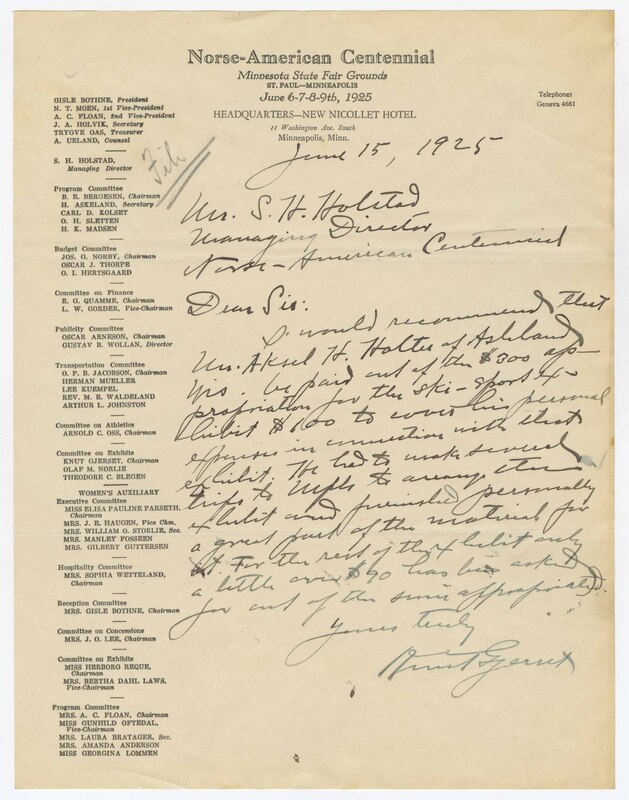 Norse-American Centennial
Minnesota State Fair Grounds
ST. PAUL—MINNEAPOLIS
June 6-7-8-9th, 1925
HEADQUARTERS—NEW NICOLLET HOTEL
11 Washington Ave. South
Minneapolis, Minn.
Telephone:
Geneva 4661
GISLE BOTHNE, President
N. T. MOEN, 1st Vice-President
A. C. FLOAN, 2nd Vice-President
J. A. HOLVIK, Secretary
TRYGVE OAS, Treasurer
A. UELAND, Counsel
S. H. HOLSTAD,
Managing Director
Program Committee
B. E. BERGESEN, Chairman
H. ASKELAND, Secretary
CARL D. KOLSET
O. H. SLETTEN
H. K. MADSEN
Budget Committee
JOS. G. NORBY, Chairman
OSCAR J. THORPE
O. I. HERTSGAARD
Committee on Finance
E. G. QUAMME, Chairman
L. W. GORDER, Vice-Chairman
Publicity Committee
OSCAR ARNESON, Chairman
GUSTAV B. WOLLAN, Director
Transportation Committee
O. P. B. JACOBSON, Chairman
HERMAN MUELLER
LEE KUEMPEL
REV. M. E. WALDELAND
ARTHUR L. JOHNSTON
Committee on Athletics
ARNOLD C. OSS, Chairman
Committee on Exhibits
KNUT GJERSET, Chairman
OLAF M. NORLIE
THEODORE C. BLEGEN
WOMEN'S AUXILIARY
Executive Committee
MISS ELISA PAULINE FARSETH,
Chairman
MRS. J. E. HAUGEN, Vice Chm.
MRS. WILLIAM O. STORLIE, Sec.
MRS. MANLEY FOSSEEN
MRS. GILBERT GUTTERSEN
Hospitality Committee
MRS. SOPHIA WETTELAND,
Chairman
Reception Committee
MRS. GISLE BOTHNE, Chairman
Committee on Concessions
MRS. J. O. LEE, Chairman
Committee on Exhibits
MISS HERBORG REQUE,
Chairman
MRS. BERTHA DAHL LAWS,
Vice-Chairman
Program Committee
MRS. A. C. FLOAN, Chairman
MISS GUNHILD OFTEDAL,
Vice-Chairman
MRS. LAURA BRATAGER, Sec.
MRS. AMANDA ANDERSON
MISS GEORGINA LOMMEN
File
June 15, 1925
Mr. S. H. Holstad
Managing Director
Norse-American Centennial
Dear Sir:
I would recommend that
Mr. Aksel H. Holter of Ashland
Wis. be paid out of the $300 ap-
propriation for the ski-sport ex-
hibit $100 to cover his personal
expenses in connection with that
exhibit. He had to make several
trips to Mpls to arrange the
exhibit and furnished personally
a great part of the material for
it. For the rest of the exhibit only
a little over $90 has been asked
for out of the sum appropriated.
Yours truly
Knut Gjerset